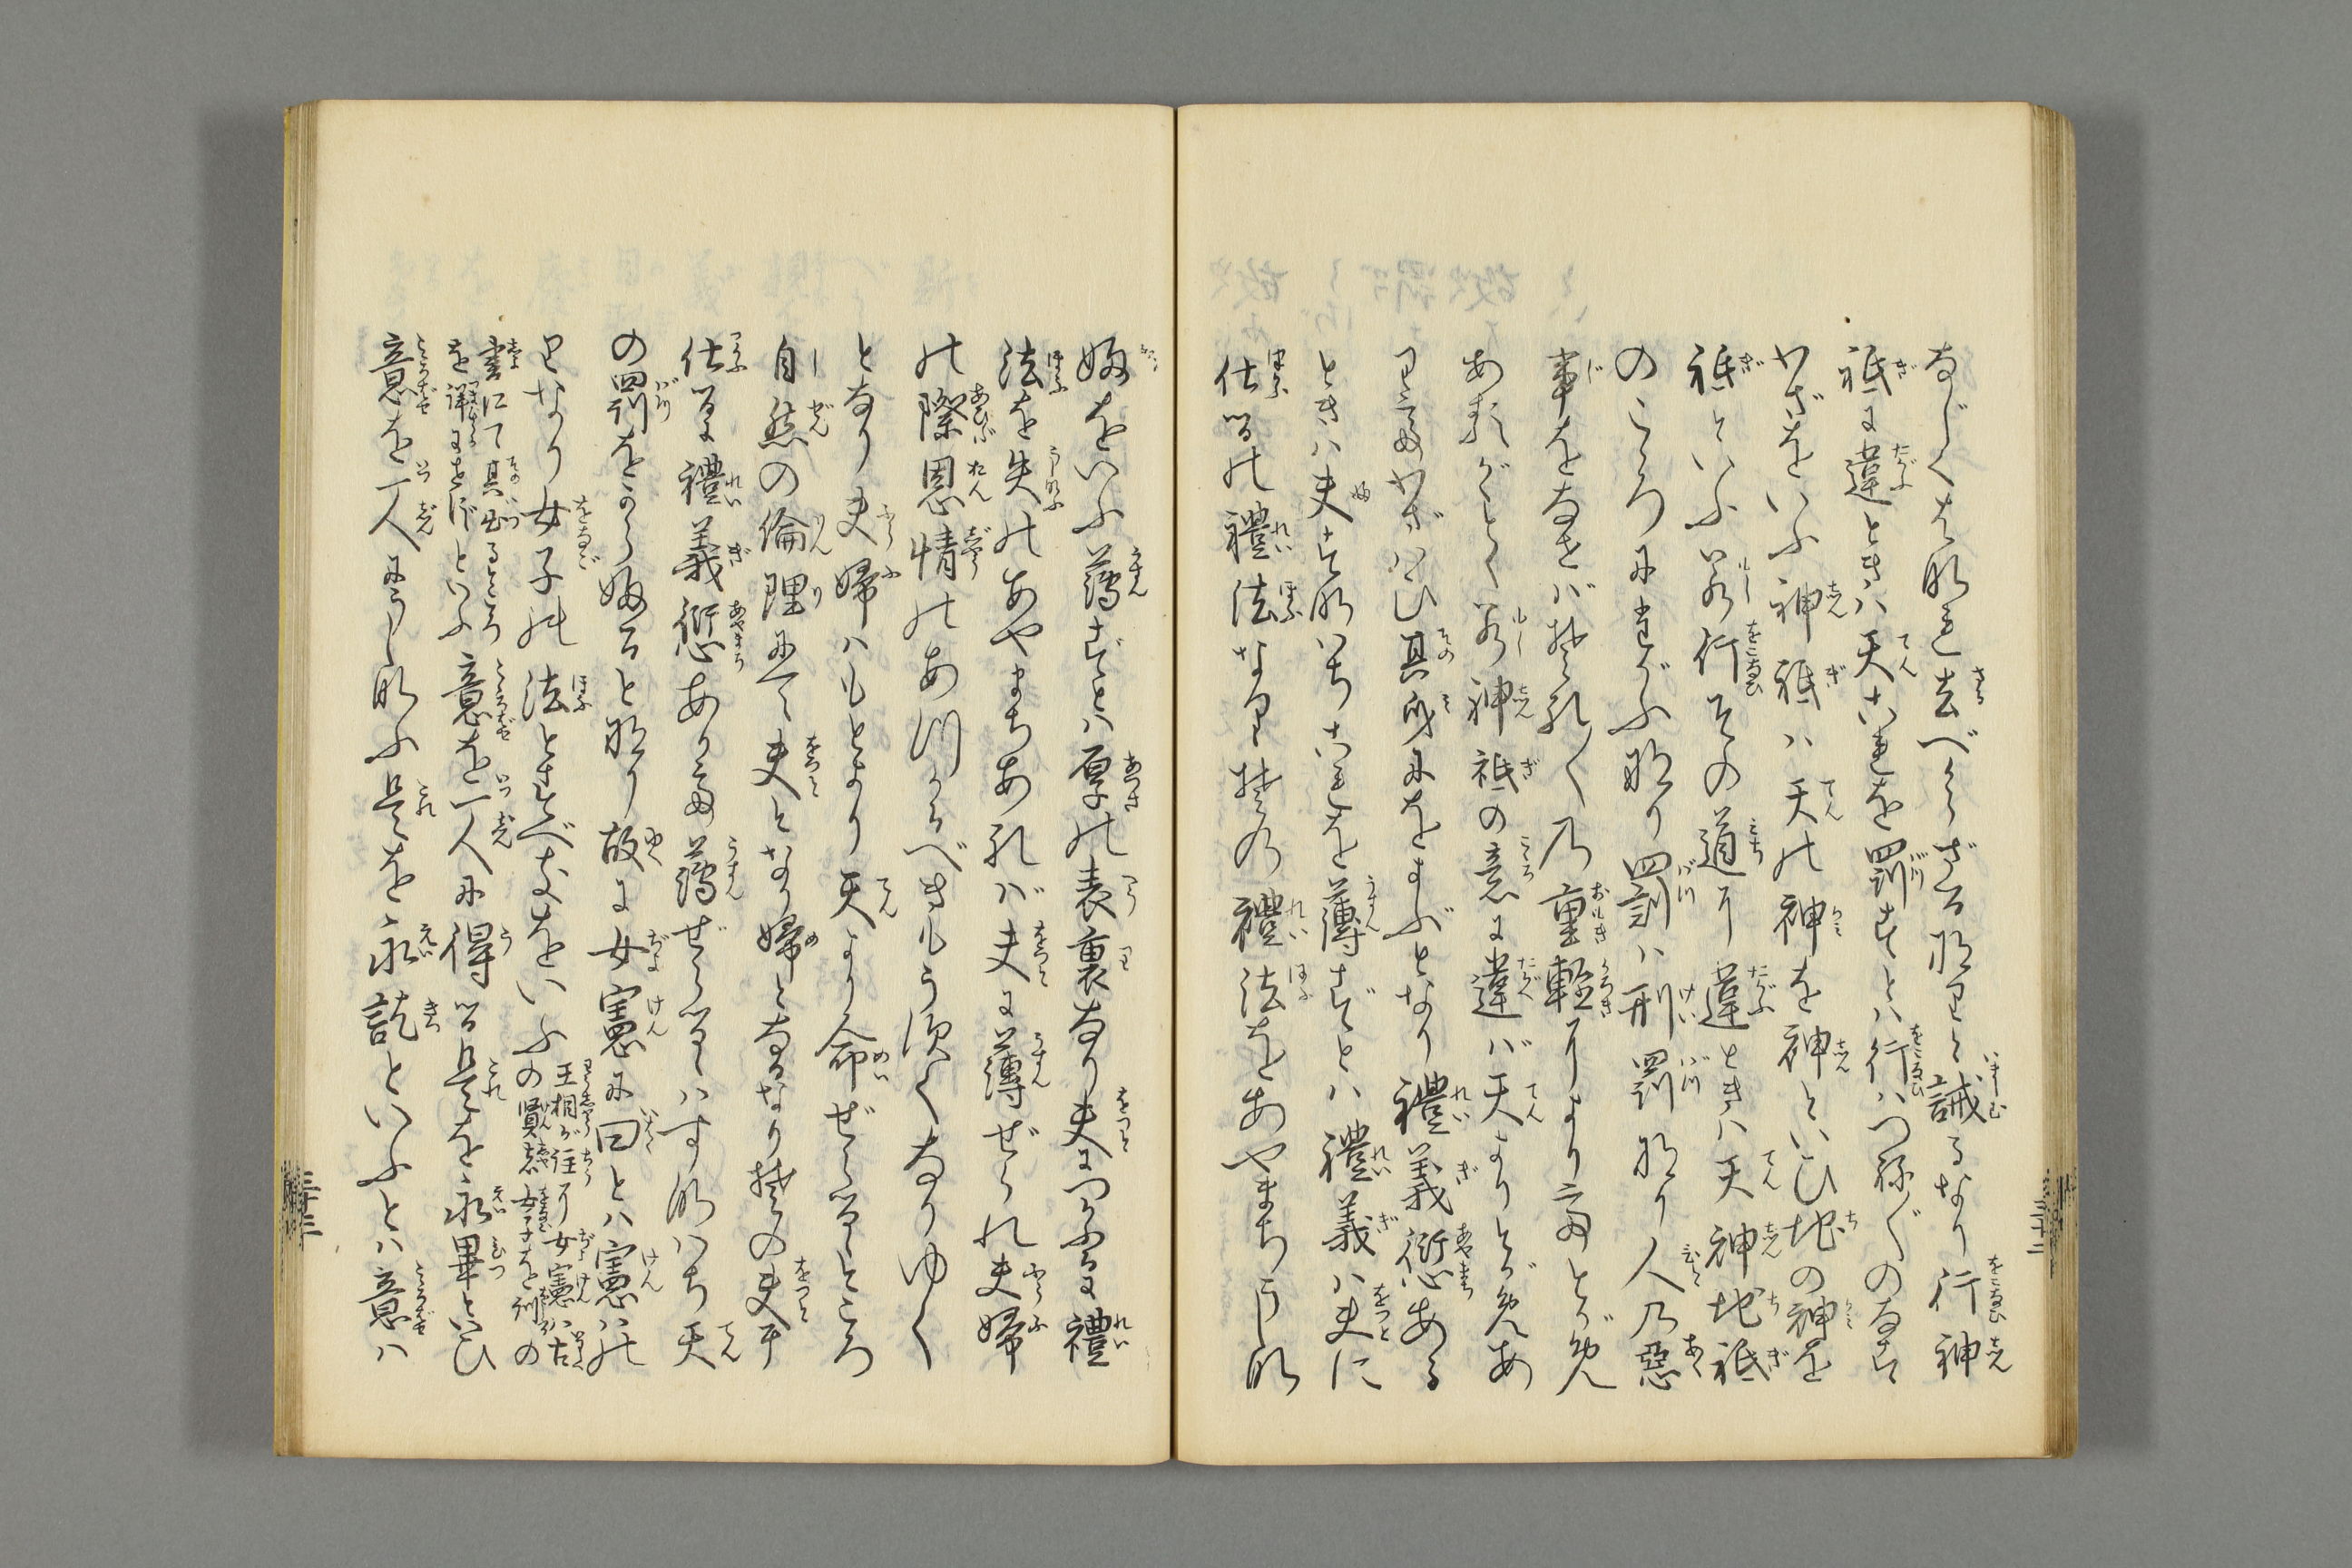 なじくはなれ去べからざる理りと誡るなり行神
祇に違ときハ天これを罰すとハ行ハつね〴〵のなす
わざをいふ神祇ハ天の神を神といひ地の神を
祇といふ若行その道に違ときハ天神地祇
のこゝろにたがふ也り罰ハ刑罰なり人の悪
事をなせバそれ〳〵の重軽によりてとがめ
あるがごとく若神祇の意に違バ天よりとがめあ
りてわざハひ其身におよぶとなり禮義愆ある
ときハ夫すなハちこれを薄ずとハ禮義ハ夫に
仕るの禮法なりその禮法をあやまちうしな
ふをいふ薄ずとハ厚の表裏なり夫につかふるに禮
法を失のあやまちあれバ夫に薄ぜられ夫婦
の際恩情のあつかるべきもうすくなりゆく
となり夫婦ハもとより天より命ぜらるゝところ
自然の倫理にて夫となり婦となるなりその夫に
仕るに禮義愆ありて薄ぜらるゝハすなハち天
の罰をかうふると也り故に女憲に曰とハ憲ハの
りなり女子の法とすべきをいふ
王相が註に女憲ハ古
の賢者女子を訓の
書にて其出るところ
を詳にせずといふ
意を一人に得る是を永畢といひ
意を一人にうしなふ是を永訖といふとハ意ハ
三十二
三十三